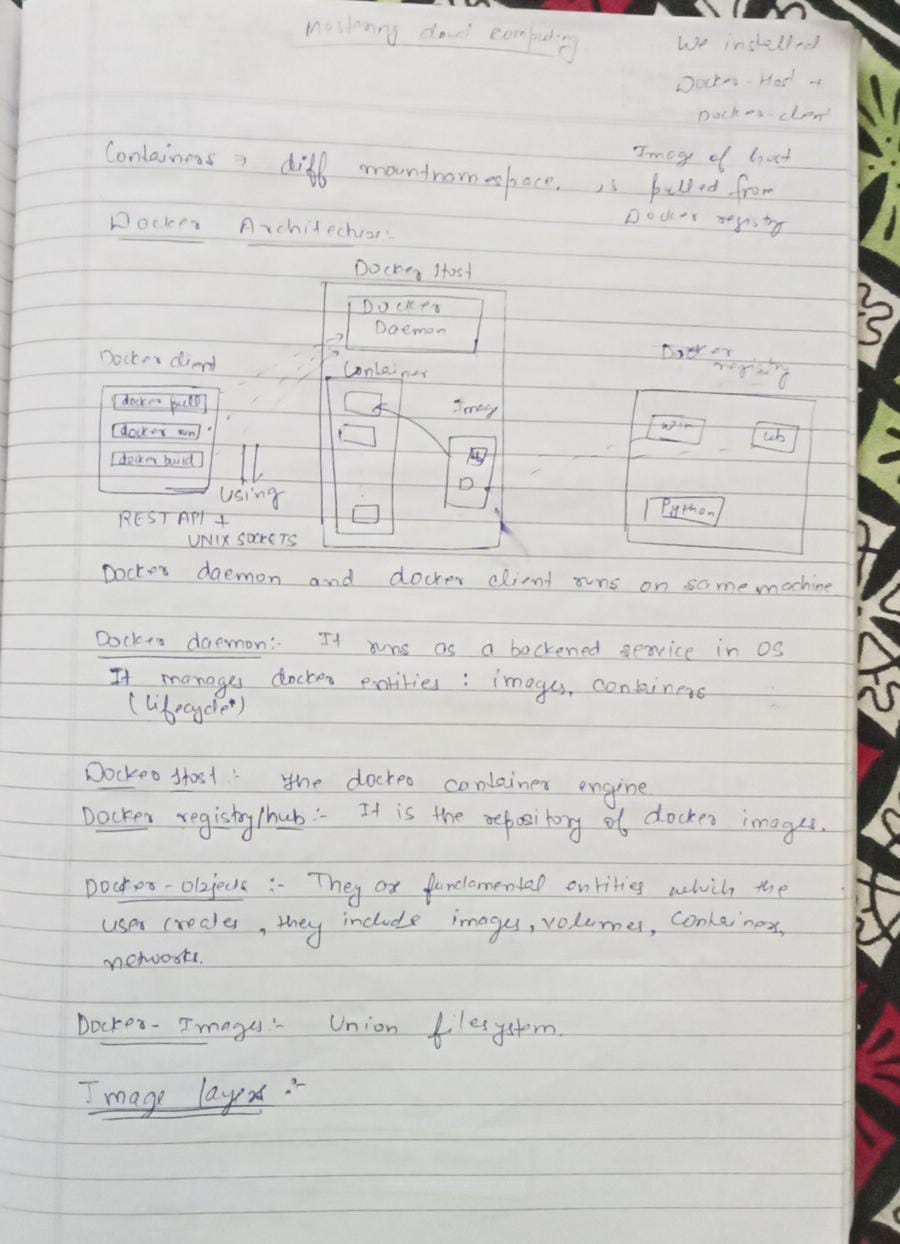 Mastering cloud computing
We installed
Docker-Host +
Docker-client
Containers → diff mountnamespace.
Image of host
is pulled from
Docker registry
Docker Architecture:-
Docker Host
Docker
Daemon
Docker client
docker pull
docker run
docker build
Using
REST API +
UNIX SOCKETS
Container
Image
Docker
registry
win
ub
Python
Docker daemon and docker client runs on same machine
Docker daemon:- It runs as a backened service in OS
It manages docker entities : images, containers
(lifecycle*)
Docker Host :- the docker container engine
Docker registry/hub :- It is the repository of docker images.
Docker-objects :- They ar fundamental entities which the
user creates, they include images, volumes, Container,
networks.
Docker-Images :- Union filesystem.
Image layers :-